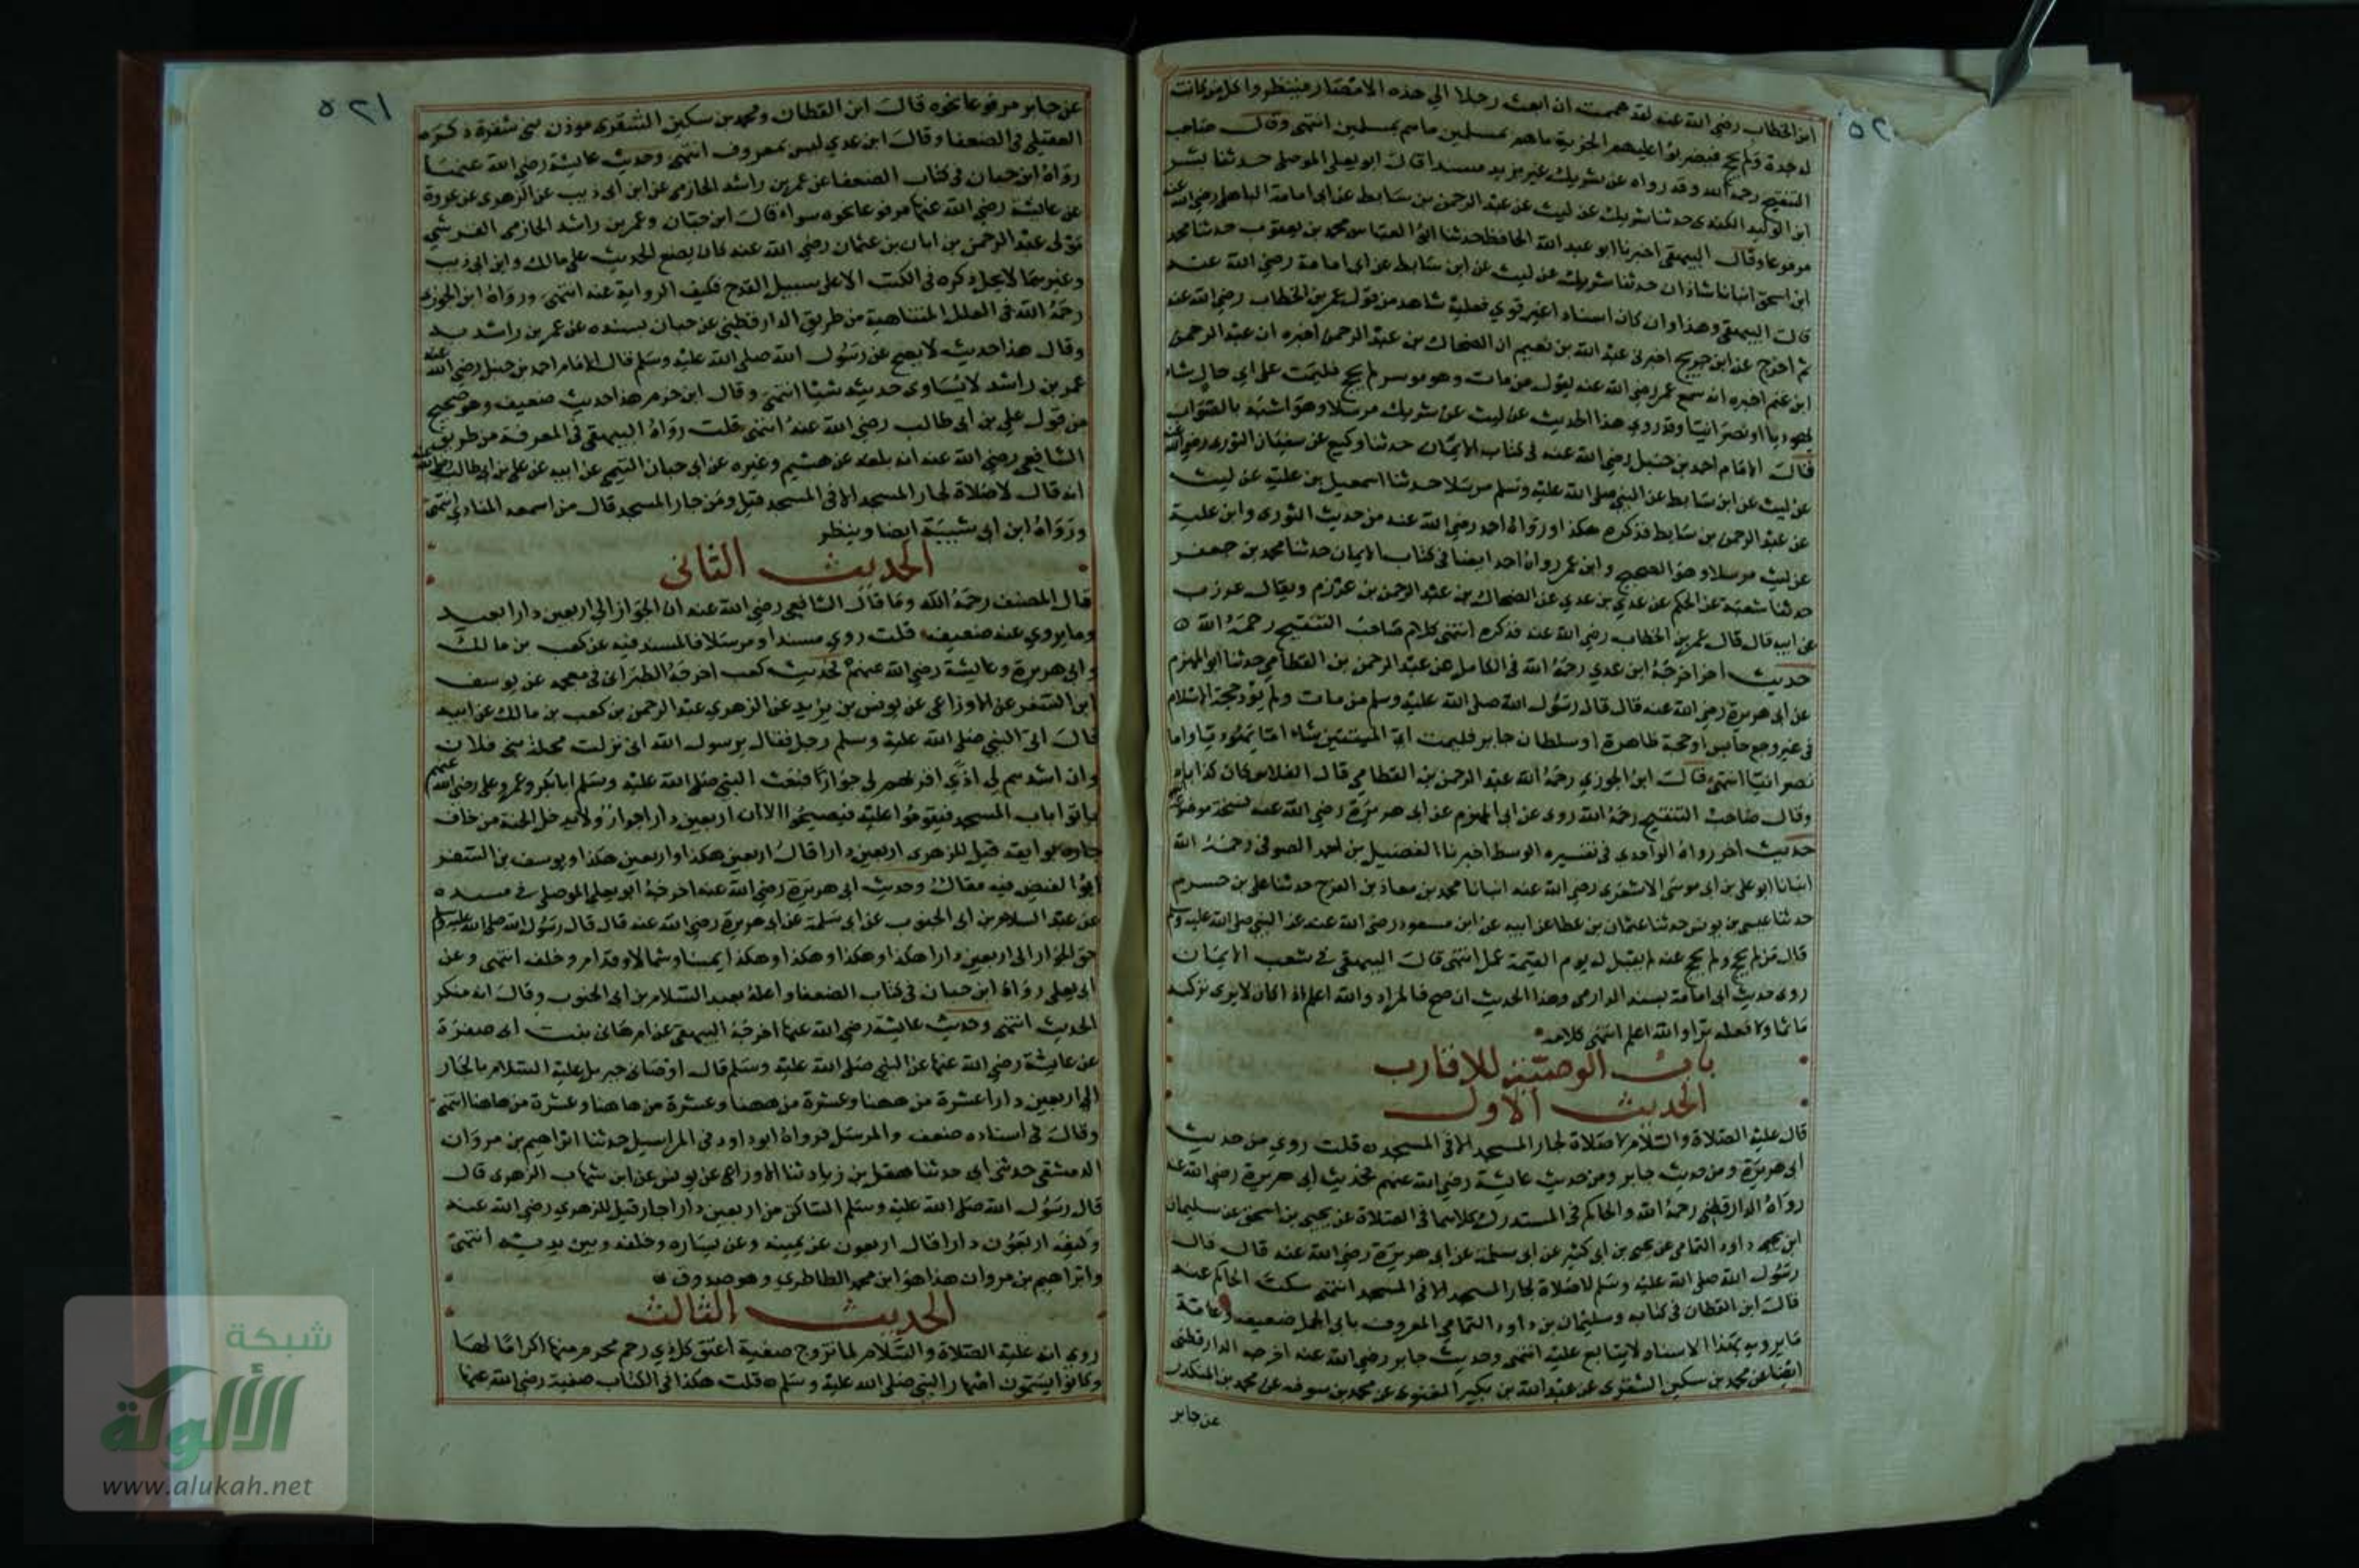 ٥٢٠
ابن الخطاب رضي الله عنه لقد هممت ان ابعث رجلا الي هذه الامصار فينظروا كل من كانت
له جدة ولم يحج فيضربوا عليهم الجزية ما هم بمسلمين ما هم بمسلمين انتهى وقال صاحب
التنقيح رحمه الله وقد رواه عن شريك غير يزيد مسندا قال ابو يعلى الموصلي حدثنا بشر
ابن الوليد الكندي حدثنا شريك عن ليث عن عبد الرحمن بن سابط عن ابي امامة الباهلي رضي الله عنه
مرفوعا وقال البيهقي اخبرنا ابو عبد الله الحافظ حدثنا ابو العباس محمد بن يعقوب حدثنا محمد
ابن اسحق انبانا شاذان حدثنا شريك عن ليث عن ابن سابط عن ابي امامة رضي الله عنه
قال البيهقي وهذا وان كان اسناد اغير قوي فعليه شاهد من قول عمر بن الخطاب رضي الله عنه
ثم اخرج عن ابن جريج اخبرني عبد الله بن نعيم ان الضحاك بن عبد الرحمن اخبره ان عبد الرحمن
ابن غنم اخبره انه سمع عمر رضي الله عنه يقول من مات وهو موسر لم يحج فليمت على اي حال شاء
يهوديا او نصرانيا وقد روي هذا الحديث عن ليث عن شريك مرسلا وهو اشبه بالصواب
قال الامام احمد بن حنبل رضي الله عنه في كتاب الايمان حدثنا وكيع عن سفيان الثوري رضي الله عنه
عن ليث عن ابن سابط عن النبي صلى الله عليه وسلم مرسلا حدثنا اسمعيل بن علية عن ليث
عن عبد الرحمن بن سابط فذكره هكذا ورواه احمد رضي الله عنه من حديث الثوري وابن علية
عن ليث مرسلا وهو الصحيح وابن عمر رواه احمد ايضا في كتاب الايمان حدثنا محمد بن جعفر
حدثنا شعبة عن الحكم عن عدي بن عدي عن الضحاك بن عبد الرحمن بن عرزم ويقال عرزب
عن ابيه قال قال عمر بن الخطاب رضي الله عنه فذكره انتهى كلام صاحب التنقيح رحمه الله ه
حديث اخر اخرجه ابن عدي رحمه الله في الكامل عن عبد الرحمن بن القطامي حدثنا ابو المهزم
عن ابي هريرة رضي الله عنه قال قال رسول الله صلى الله عليه وسلم من مات ولم يؤد حجة الاسلام
في غير وجع حابس او حجة ظاهرة او سلطان جاير فليمت اي الميتتين شاء اما يهوديا واما
نصرانيا انتهى قال ابن الجوزي رحمه الله عبد الرحمن بن القطامي قال الفلاس كان كذابا
وقال صاحب التنقيح رحمه الله روى عن ابي المهزم عن ابي هريرة رضي الله عنه نسخة موضوعة
حديث اخر رواه الواحدي في تفسيره الوسط اخبرنا الفضيل بن احمد الصوفي رحمه الله
انبانا ابو علي بن ابي موسى الاشعري رضي الله عنه انبانا محمد بن معاذ بن الفرج حدثنا علي بن خسرم
حدثنا عيسى بن يونس حدثنا عثمان بن عطا عن ابيه عن ابن مسعود رضي الله عنه عن النبي صلى الله عليه وسلم
قال من لم يحج ولم يحج عنه لم يقبل له يوم القيمة عمل انتهى قال البيهقي في شعب الايمان
روى حديث ابي امامة بسند الدارمي وهذا الحديث ان صح فالمراد والله اعلم اذا كان لا يرى تركه
ماثما ولا فعله برا والله اعلم انتهى كلامه
باب الوصية للاقارب
الحديث الاول
قال عليه الصلاة والسلام لا صلاة لجار المسجد الا في المسجد ه قلت روي من حديث
ابي هريرة ومن حديث جابر ومن حديث عايشة رضي الله عنهم فحديث ابي هريرة رضي الله عنه
رواه الدارقطني رحمه الله والحاكم في المستدرك كلاهما في الصلاة عن يحيى بن اسحق عن سليمان
ابن داود اليمامي عن يحيى بن ابي كثير عن ابي سلمة عن ابي هريرة رضي الله عنه قال قال
رسول الله صلى الله عليه وسلم لا صلاة لجار المسجد الا في المسجد انتهى سكت الحاكم عنه
قال ابن القطان في كتابه وسليمان بن داود اليمامي المعروف بابي الجمل ضعيف وعامة
ما يرويه بهذا الاسناد لا يتابع عليه انتهى وحديث جابر رضي الله عنه اخرجه الدارقطني
ايضا عن محمد بن سكين الشقري عن عبد الله بن بكير الغنوي عن محمد بن سوقه عن محمد بن المنكدر
عن جابر
٥٢١
عن جابر مرفوعا نحوه قال ابن القطان ومحمد بن سكين الشقري موذن بني شقرة ذكره
العقيلي في الضعفا وقال ابن عدي ليس بمعروف انتهى وحديث عايشة رضي الله عنها
رواه ابن حبان في كتاب الضعفا عن عمر بن راشد الجازمي عن ابن ابي ذيب عن الزهري عن عروة
عن عايشة رضي الله عنها مرفوعا نحوه سواء قال ابن حبان وعمر بن راشد الجازمي القرشي
مولى عبد الرحمن بن ابان بن عثمان رضي الله عنه كان يضع الحديث على مالك وابن ابي ذيب
وغيرهما لا يحل ذكره في الكتب الا على سبيل القدح فكيف الرواية عنه انتهى ورواه ابن الجوزي
رحمه الله في العلل المتناهية من طريق الدارقطني عن حبان بسنده عن عمر بن راشد به
وقال هذا حديث لا يصح عن رسول الله صلى الله عليه وسلم قال الامام احمد بن حنبل رضي الله عنه
عمر بن راشد لا يساوي حديثه شيئا انتهى وقال ابن حزم هذا حديث ضعيف وهو صحيح
من قول علي بن ابي طالب رضي الله عنه انتهى قلت رواه البيهقي في المعرفة من طريق
الشافعي رضي الله عنه انه بلغه عن هشيم وغيره عن ابي حبان التيمي عن ابيه عن علي بن ابي طالب رضي الله عنه
انه قال لا صلاة لجار المسجد الا في المسجد قيل ومن جار المسجد قال من اسمعه المنادي انتهى
ورواه ابن ابي شيبة ايضا وينظر
الحديث الثاني
قال المصنف رحمه الله وما قال الشافعي رضي الله عنه ان الجوار الي اربعين دارا بعيد
وما يروي عنه ضعيف قلت روي مسندا ومرسلا فالمسند فيه عن كعب بن مالك
وابي هريرة وعايشة رضي الله عنهم فحديث كعب اخرجه الطبراني في معجمه عن يوسف
ابن السفر عن الاوزاعي عن يونس بن يزيد عن الزهري عبد الرحمن بن كعب بن مالك عن ابيه
قال اتى النبي صلى الله عليه وسلم رجل فقال يرسول الله اني نزلت محلة بني فلان
وان اشدهم لي اذي اقربهم لي جوارا فبعث النبي صلى الله عليه وسلم ابا بكر وعمر وعلي رضي الله عنهم
ياتوا باب المسجد فيقوموا عليه فيصيحوا الا ان اربعين دارا جوار ولا يدخل الجنة من خاف
جاره بوايقه قيل للزهري اربعين دارا قال اربعين هكذا واربعين هكذا ويوسف بن السفر
ابو الفيض فيه مقال وحديث ابي هريرة رضي الله عنه اخرجه ابو يعلى الموصلي في مسنده
عن عبد السلام بن ابي الجنوب عن ابي سلمة عن ابي هريرة رضي الله عنه قال قال رسول الله صلى الله عليه وسلم
حق الجوار الى اربعين دارا هكذا وهكذا وهكذا وهكذا يمينا وشمالا وقدام وخلف انتهى وعن
ابي يعلى رواه ابن حبان في كتاب الضعفا واعله بعبد السلام بن ابي الجنوب وقال انه منكر
الحديث انتهى وحديث عايشة رضي الله عنها اخرجه البيهقي عن ام هاني بنت ابي صفرة
عن عايشة رضي الله عنها عن النبي صلى الله عليه وسلم قال اوصاني جبريل عليه السلام بالجار
الي اربعين دارا عشرة من ههنا وعشرة من ههنا وعشرة من هاهنا وعشرة من هاهنا انتهى
وقال في اسناده ضعف والمرسل فرواه ابو داود في المراسيل حدثنا ابراهيم بن مروان
الدمشقي حدثني ابي حدثنا هقل بن زياد ثنا الاوزاعي عن يونس عن ابن شهاب الزهري قال
قال رسول الله صلى الله عليه وسلم الساكن من اربعين دارا جار قيل للزهري رضي الله عنه
وكيف اربعون دارا قال اربعون عن يمينه وعن يساره وخلفه وبين يديه انتهى
وابراهيم بن مروان هذا هو ابن محمد الطاطري وهو صدوق ه
الحديث الثالث
روي انه عليه الصلاة والسلام لما تزوج صفية اعتق كل ذي رحم محرم منها اكراما لها
وكانوا يسمون اصهار النبي صلى الله عليه وسلم ه قلت هكذا في الكتاب صفية رضي الله عنها
شبكة
الألوكة
www.alukah.net